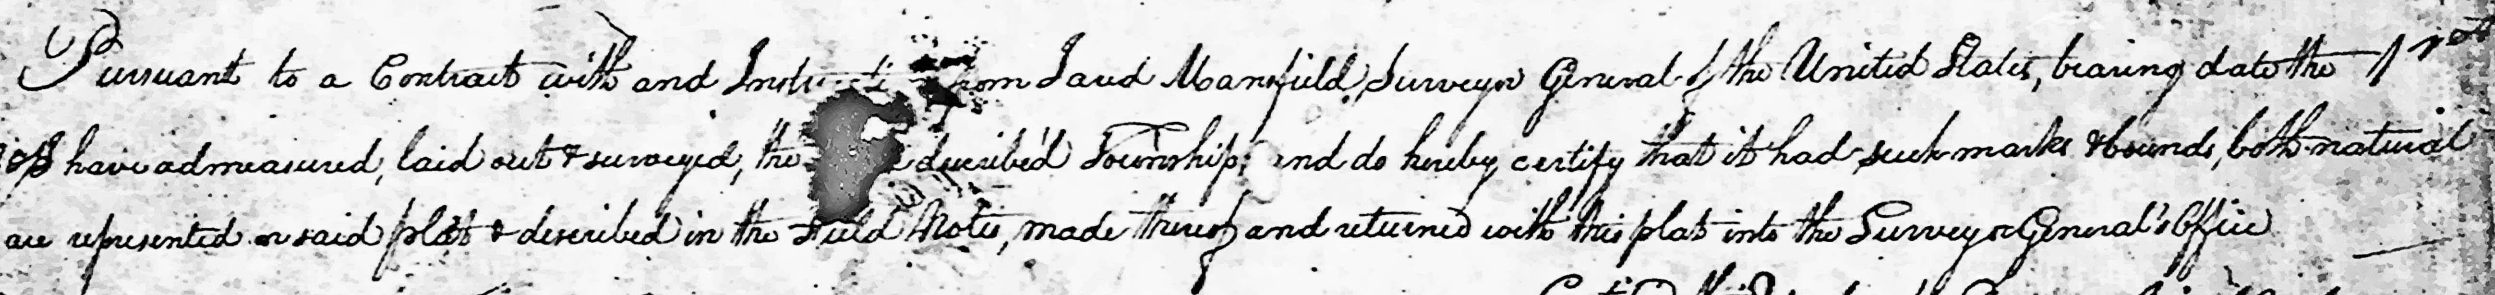 Pursuant to a Contract with and from Jared Mansfield, Surveyor General of the United States, bearing date the
have admeasured, laid out & surveyed, the describ'd Township, and do hereby certify that it had such marks & bounds, both natural
are represented on said plat & described in the Field Notes, made thereof and returned with this plat into the Surveyor General's Office